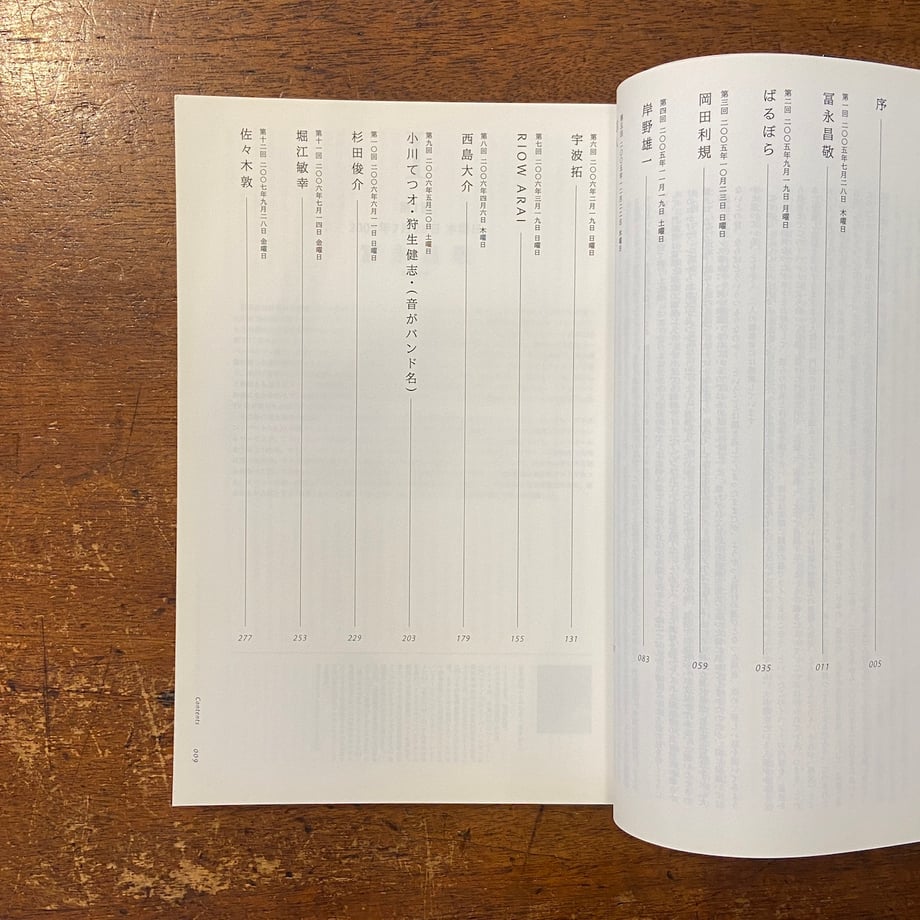 序
005
第一回 二〇〇五年七月二八日 木曜日
冨永昌敬
011
第二回 二〇〇五年九月一九日 月曜日
ばるぼら
035
第三回 二〇〇五年一〇月二三日 日曜日
岡田利規
059
第四回 二〇〇五年一一月一九日 土曜日
岸野雄一
083
第六回 二〇〇六年二月一九日 日曜日
宇波拓
131
第七回 二〇〇六年三月一九日 日曜日
RIOW ARAI
155
第八回 二〇〇六年四月六日 木曜日
西島大介
179
第九回 二〇〇六年五月二〇日 土曜日
小川てつオ・狩生健志・(音がバンド名)
203
第一〇回 二〇〇六年六月一一日 日曜日
杉田俊介
229
第十一回 二〇〇六年七月一四日 金曜日
堀江敏幸
253
第十二回 二〇〇七年九月二八日 金曜日
佐々木敦
277
Contents 009